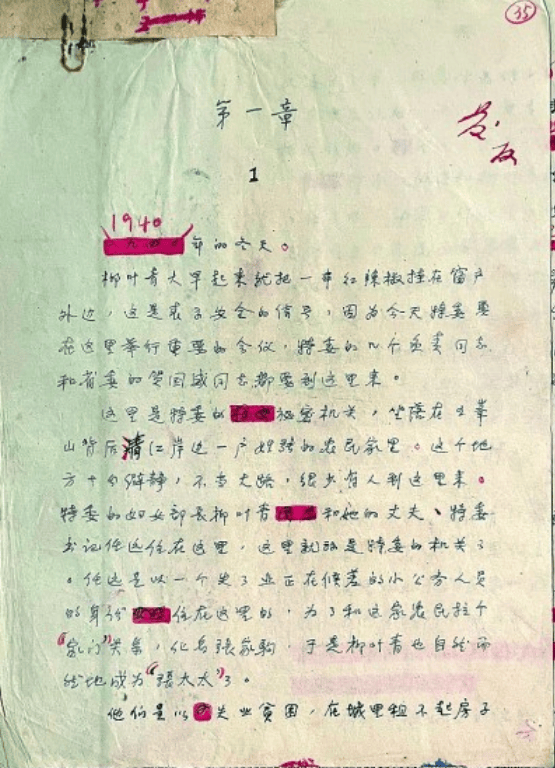 35
第一章
1
1940
年的冬天。
柳叶青大早起来就把一串红辣椒挂在窗户
外边,这是表示安全的信号,因为今天特委要
在这里举行重要的会议,特委的几个负责同志
和省委的贺国威同志都要到这里来。
这里是特委的秘密机关,坐落在五峯
山背后清江岸边一户姓路的农民家里。这个地
方十分僻静,不当大路,很少有人到这里来。
特委的妇女部长柳叶青和她的丈夫、特委
书记任远住在这里,这里就算是特委的机关了
。任远是以一个失了业正在候差的小公务人员
的身份住在这里的,为了和这家农民拉个
“家门”关系,化名张家驹,于是柳叶青也自然而
然地成为“张太太”了。
他们是以失业贫困,在城里租不起房子